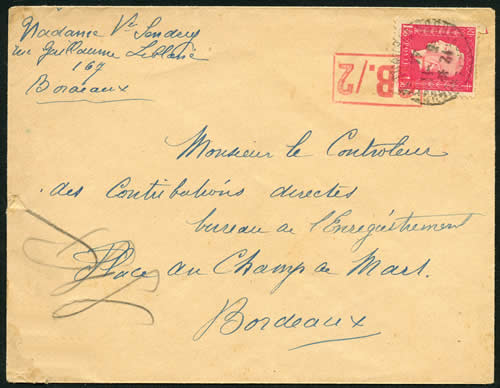 Madame Vᵉ
rue Guillaume Leblanc
167
Bordeaux
B./2
Monsieur le Controleur
des Contributions directes
bureau de l'Enregistrement
Place du Champ de Mars.
Bordeaux